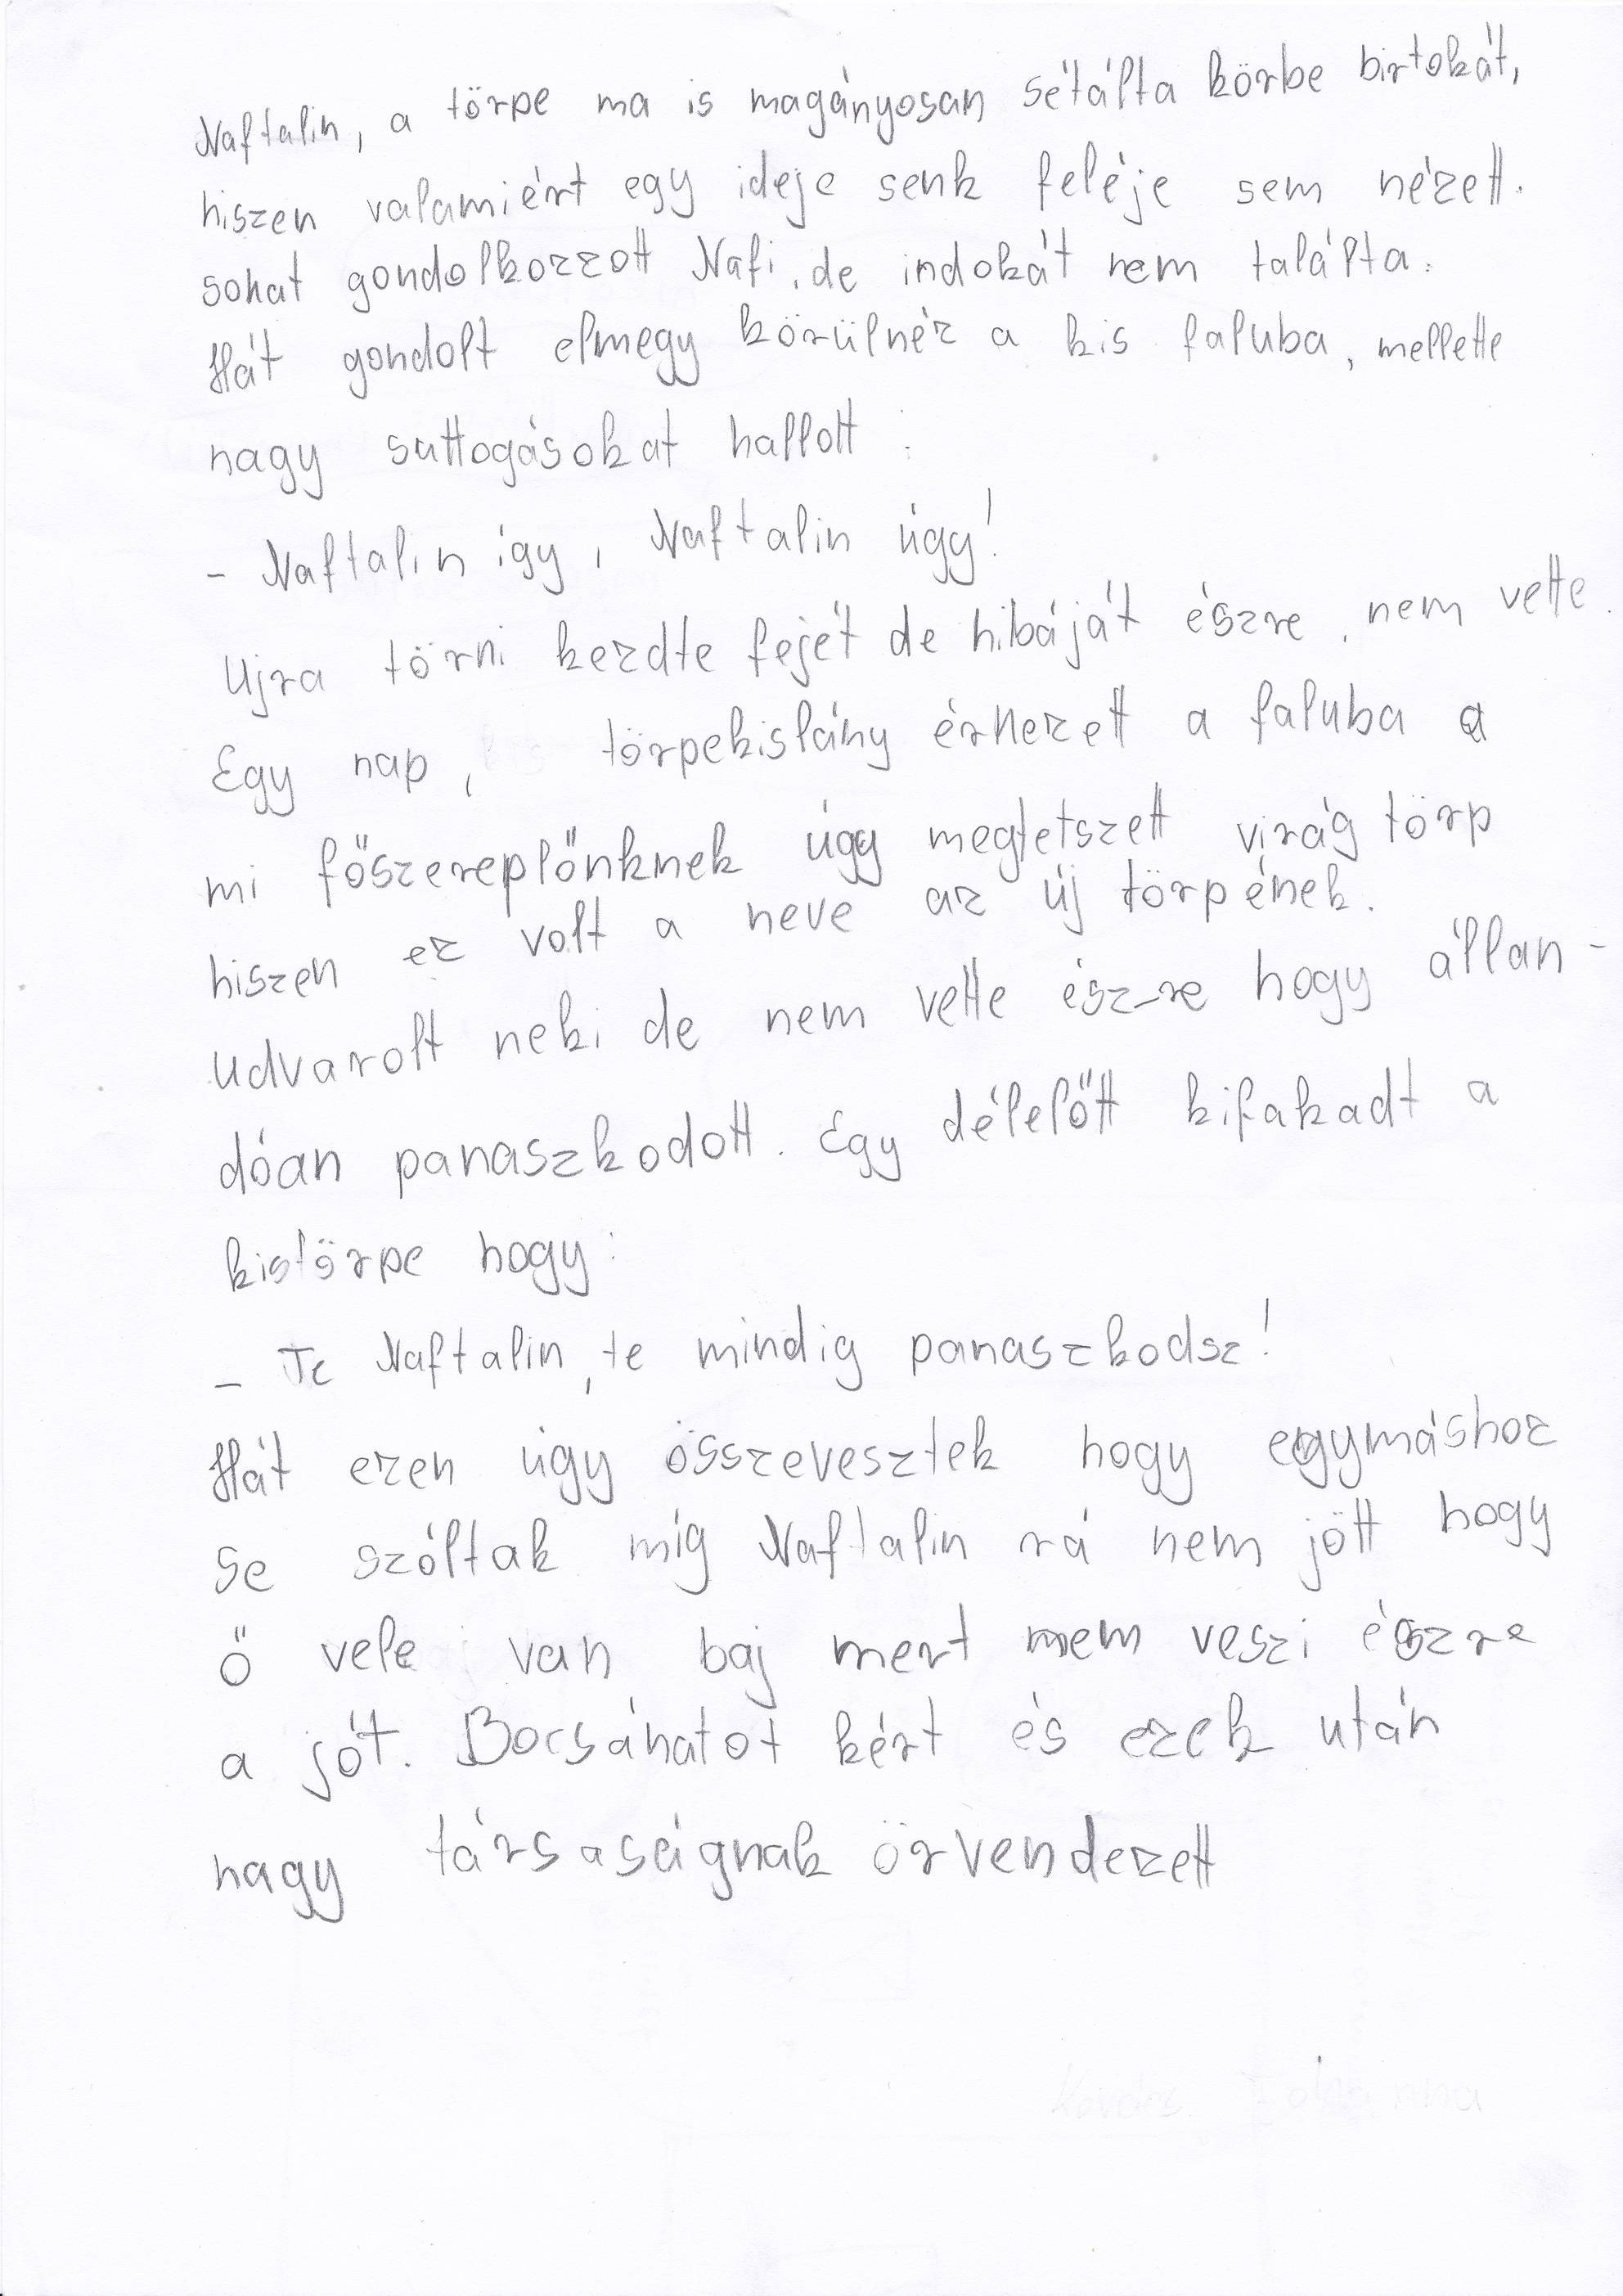 Naftalin, a törpe ma is magányosan sétálta körbe birtokát,
hiszen valamiért egy ideje senk feléje sem nézett.
sokat gondolkozzott Nafi, de indokát nem találta.
Hát gondolt elmegy körülnéz a kis faluba, mellette
nagy suttogásokat hallott:
- Naftalin így, Naftalin úgy!
Ujra törni kezdte fejét de hibáját észre, nem vette.
Egy nap, törpekislány érkezett a faluba a
mi főszereplőnknek úgy megtetszett virág törp
hiszen ez volt a neve az új törpének.
Udvarolt neki de nem vette észre hogy állan-
dóan panaszkodott. Egy délelőtt kifakadt a
kistörpe hogy:
- Te Naftalin, te mindig panaszkodsz!
Hát ezen úgy összevesztek hogy egymáshoz
se szóltak míg Naftalin rá nem jött hogy
ő vele van baj mert nem veszi észre
a jót. Bocsánatot kért és ezek után
nagy társaságnak örvendezett